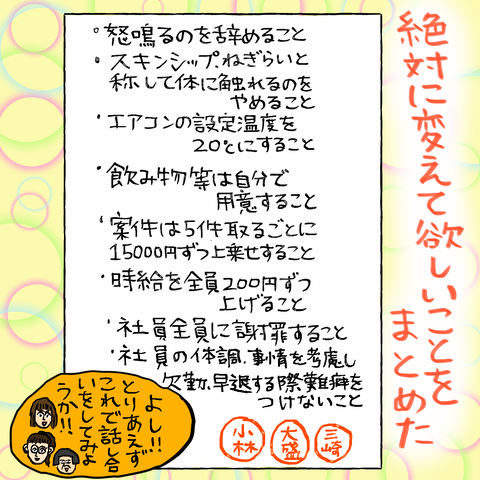 絶対に変えて欲しいことを
まとめた
・怒鳴るのを辞めること
・スキンシップ、ねぎらいと
称して体に触れるのを
やめること
・エアコンの設定温度を
20℃にすること
・飲み物等は自分で
用意すること
・案件は5件取るごとに
15000円ずつ上乗せすること
・時給を全員200円ずつ
上げること
・社員全員に謝罪すること
・社員の体調、事情を考慮し
欠勤、早退する際難癖を
つけないこと
小林
大盛
三崎
よし!!
とりあえず
これで話し合
いをしてみよ
うか!!